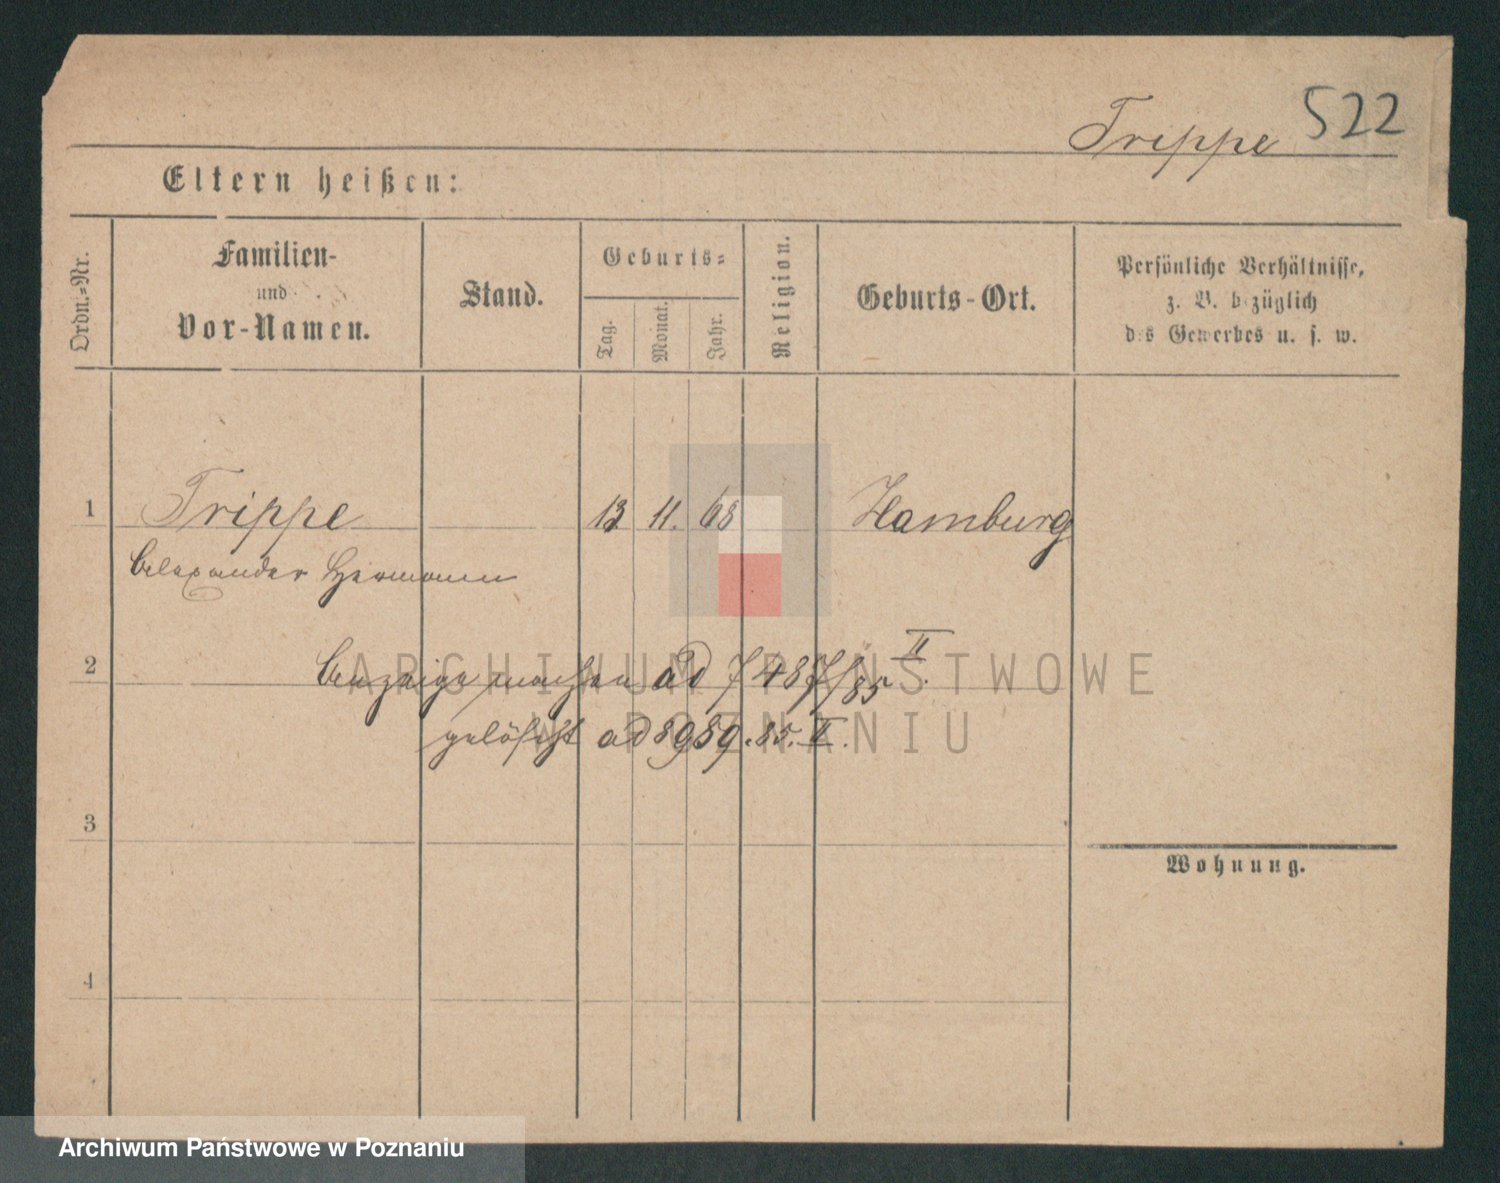 Trippe 522
Eltern heißen:
Ordn.-Nr.
Familien-
und
Vor-Namen.
Stand.
Geburts-
Tag.
Monat.
Jahr.
Religion.
Geburts-Ort.
Persönliche Verhältnisse,
z. B. bezüglich
des Gewerbes u. s. w.
1 Trippe 13. 11. 68 Hamburg
Alexander Hermann
2 Anzeige machen ad 7487/85 II.
gelöscht ad 8989.85.II.
3
Wohnung.
4
ARCHIWUM PAŃSTWOWE
W POZNANIU
Archiwum Państwowe w Poznaniu